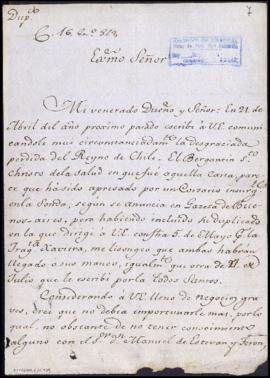 Dup.do
7
C. 16. n.o 513.
Exmo Señor
Mi venerado Dueño y Señor: En 21. de
Abril del año proximo pasado escribi à V.E. comuni
candole muy circunstanciadam.te la desgraciada
perdida del Reyno de Chile. El Bergantin S.to
Christo de la Salud en que fue aquella Carta, pare
ce que há sido apresado por un Corsario insurg.te
en la Sonda, segun se anuncia en Gazeta de Bue
nos-aires, pero habiendo incluido he duplicado
en la que dirigí à V.E. con fha. 5. de Mayo p.r la
Frag.ta Xaviera, me lisongeo que ambas habrán
llegado à sus manos, igualm.te que otra de 21. de
Julio que le escribi por la Todos Santos.
Considerando à V.E. lleno de negocios gra
ves, creí que no debia importunarle mas, por lo
qual, no obstante de no tener conocimiento
alguno con el S.or D.n Manuel de Estevan y